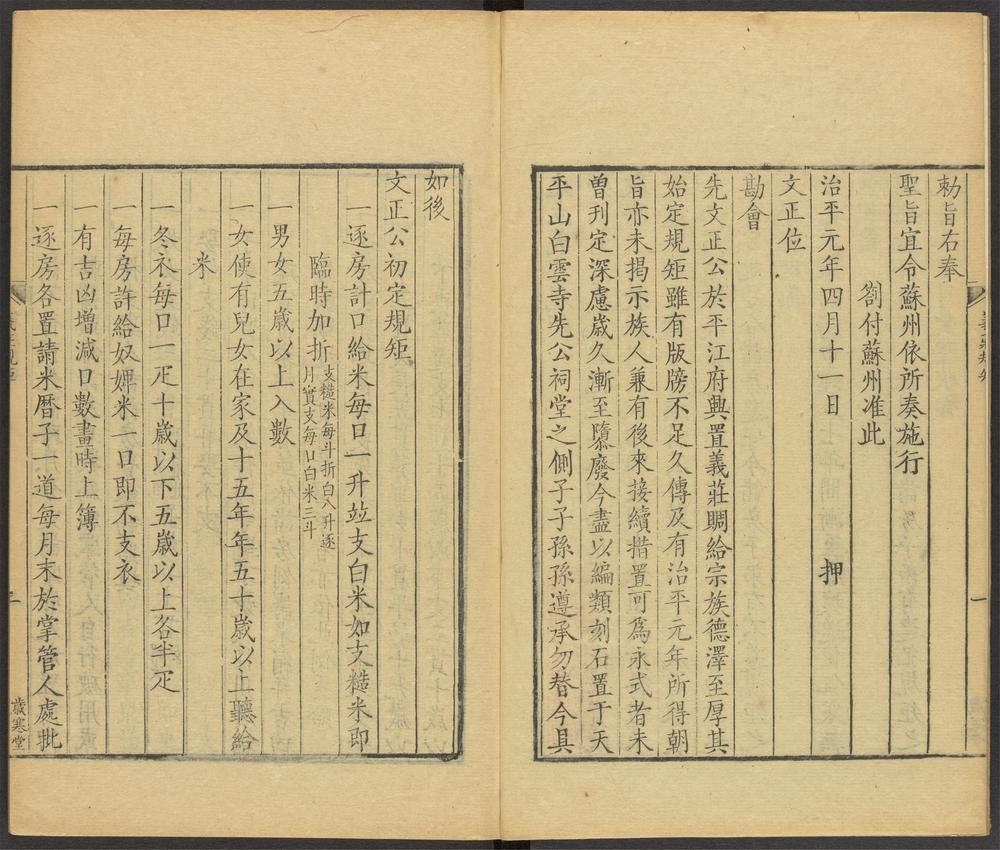 勑旨右奉
聖旨宜令蘇州依所奏施行
劄付蘇州准此
治平元年四月十一日　押
文正位
勘會
先文正公於平江府興置義莊賙給宗族德澤至厚其
始定規矩雖有版牓不足久傳及有治平元年所得朝
旨亦未揭示族人兼有後來接續措置可爲永式者未
曾刊定深慮歲久漸至隳廢今盡以編類刻石置于天
平山白雲寺先公祠堂之側子子孫孫遵承勿替今具
一
如後
文正公初定規矩
一逐房計口給米每口一升竝支白米如支糙米即
臨時加折支糙米每斗折白八升逐
月實支每口白米三斗
一男女五歲以上入數
一女使有兒女在家及十五年年五十歲以上聽給
米
一冬衣每口一疋十歲以下五歲以上各半疋
一每房許給奴婢米一口即不支衣
一有吉凶增減口數畫時上簿
一逐房各置請米曆子一道每月末於掌管人處批
歲寒堂